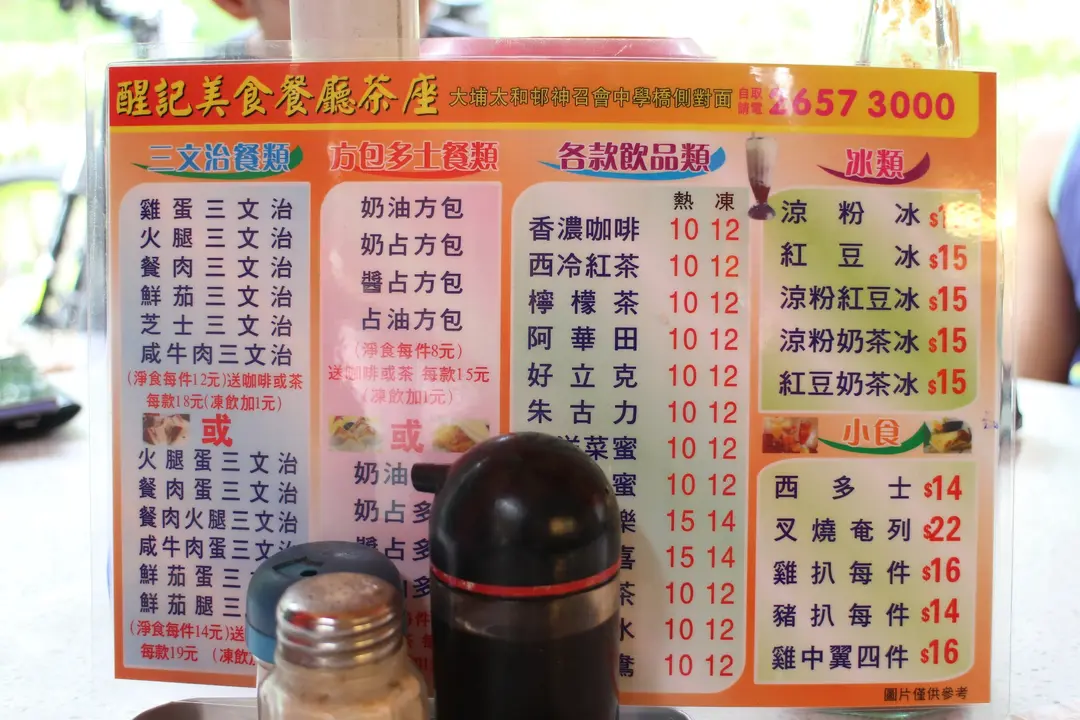 醒記美食餐廳茶座 大埔太和邨神召會中學橋側對面 自取請電 2657 3000
三文治餐類
雞蛋三文治
火腿三文治
餐肉三文治
鮮茄三文治
芝士三文治
咸牛肉三文治
(淨食每件12元)送咖啡或茶
每款18元(凍飲加1元)
或
火腿蛋三文治
餐肉蛋三文治
餐肉火腿三文治
咸牛肉蛋三文治
鮮茄蛋三
鮮茄腿三
(淨食每件14元)送
每款19元 (凍飲
方包多士餐類
奶油方包
奶占方包
醬占方包
占油方包
(淨食每件8元)
送咖啡或茶 每款15元
(凍飲加1元)
或
奶油
奶占多
醬占多
各款飲品類
熱 凍
香濃咖啡 10 12
西冷紅茶 10 12
檸檬茶 10 12
阿華田 10 12
好立克 10 12
朱古力 10 12
菜蜜 10 12
蜜 10 12
樂 15 14
喜 15 14
茶 10 12
水 10 12
鴦 10 12
冰類
涼粉冰 $
紅豆冰 $15
涼粉紅豆冰 $15
涼粉奶茶冰 $15
紅豆奶茶冰 $15
小食
西多士 $14
叉燒奄列 $22
雞扒每件 $16
豬扒每件 $14
雞中翼四件 $16
圖片僅供參考